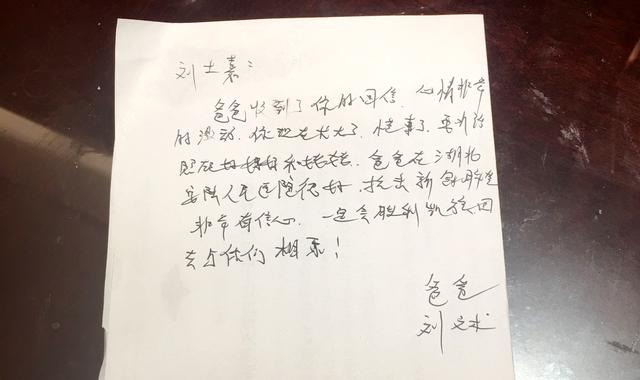 刘士嘉：
爸爸收到了你的回信，心情非常
的激动，你现在长大了，懂事了，要
照顾好妈妈和姥姥，爸爸在湖北
安陆人民医院很好，抗击新冠肺炎
非常有信心，一定会胜利凯旋，回
去与你们相系！
爸爸
刘文